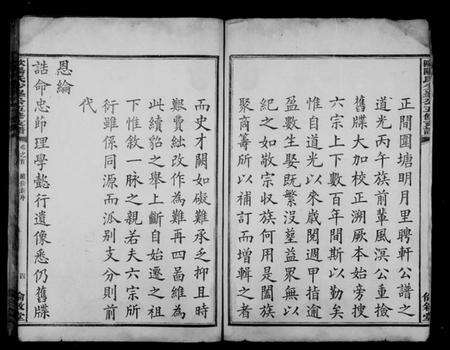 正間園塘明月里聘軒公譜之
道光丙午族前輩風溟公重檢
舊牒大加校正溯厥本始旁搜
六宗上下數百年間斯以勤矣
惟自道光以來歲閱週甲指逾
數百生娶既繁沒塟益衆無以
紀之如敬宗收族何用是闔族
聚商籌所以補訂而增輯之者
而史才闕如礙難承乏抑且時
艱費絀改作為難再四畱維為
此續貂之舉上斷自始遷之祖
下惟敘一脈之親若夫六宗所
衍雖保同源而派别支分則前
代
恩綸
誥命忠節理學懿行遺像悉仍舊牒
四